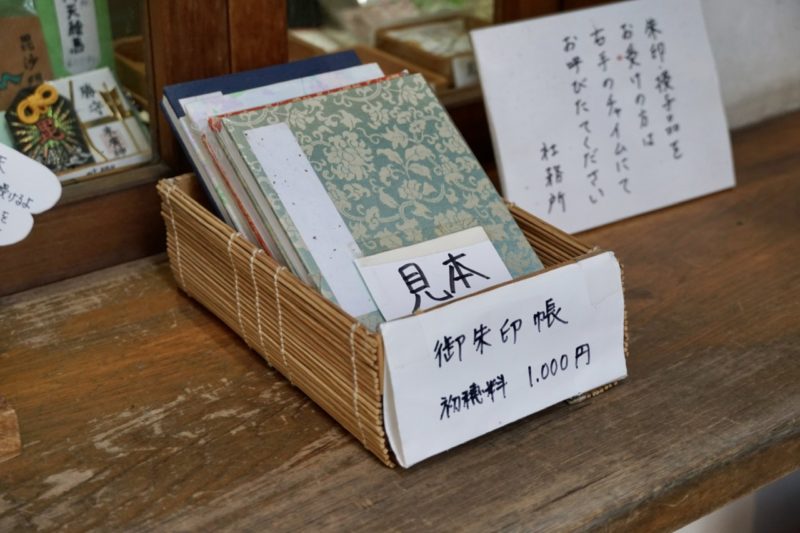 朱印 授与品を
お受けの方は
右手のチャイムにて
お呼びたてください
社務所
見本
御朱印帳
初穂料 1.000円
毘沙門
勝守